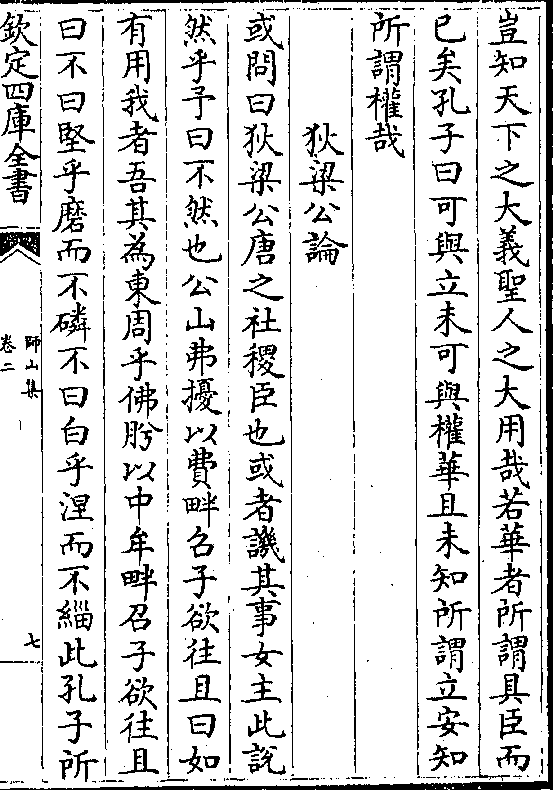 豈知天下之大義聖人之大用哉若華者所謂具臣而
已矣孔子曰可與立未可與權華且未知所謂立安知
所謂權哉
狄梁公論
或問曰狄梁公唐之社稷臣也或者譏其事女主此說
然乎予曰不然也公山弗擾以費畔召子欲往且曰如
有用我者吾其為東周乎佛肸以中牟畔召子欲往且
曰不曰堅乎磨而不磷不曰白乎涅而不緇此孔子所
欽定四庫全書
師山集
卷二
七